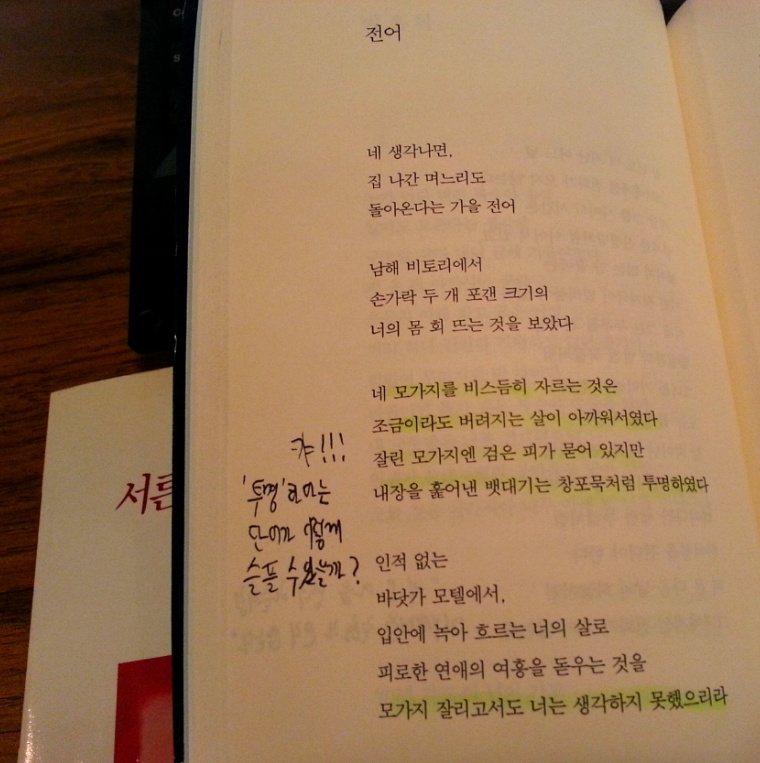 전어
네 생각나면,
집 나간 며느리도
돌아온다는 가을 전어
남해 비토리에서
손가락 두 개 포갠 크기의
너의 몸 회 뜨는 것을 보았다
네 모가지를 비스듬히 자르는 것은
조금이라도 버려지는 살이 아까워서였다
잘린 모가지엔 검은 피가 묻어 있지만
내장을 훑어낸 뱃대기는 창포묵처럼 투명하였다
인적 없는
바닷가 모텔에서,
입안에 녹아 흐르는 너의 살로
피로한 연애의 여흥을 돋우는 것을
모가지 잘리고서도 너는 생각하지 못했으리라
캬!!!
'투명'이라는
단어가 이렇게
슬플 수 있을까?
서른